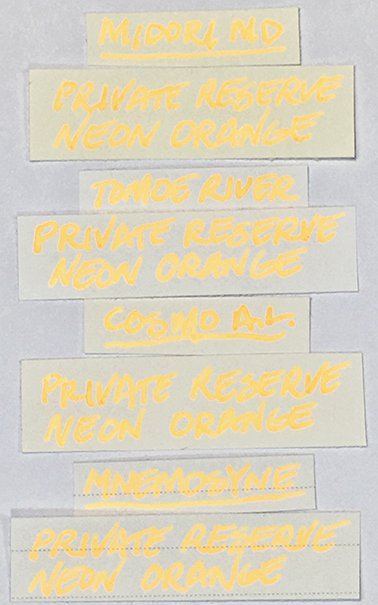 MIDORI MD
PRIVATE RESERVE
NEON ORANGE
TOMOE RIVER
PRIVATE RESERVE
NEON ORANGE
COSMO A.L.
PRIVATE RESERVE
NEON ORANGE
MNEMOSYNE
PRIVATE RESERVE
NEON ORANGE